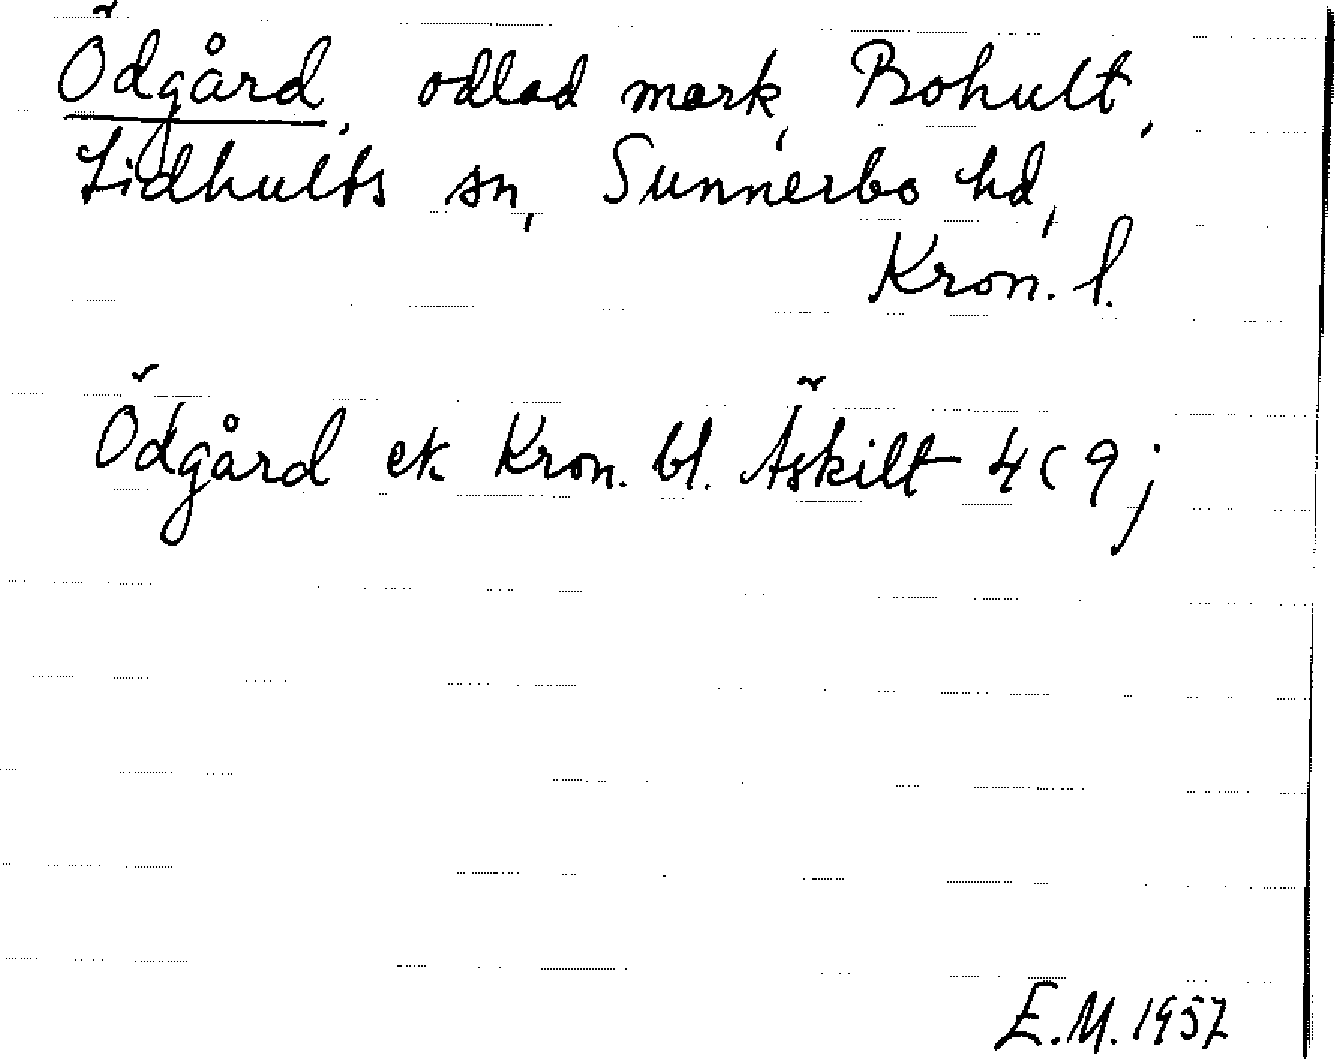 Ödgård, odlad mark, Bohult,
Lidhults sn, Sunnerbo hd,
Kron. l.
Ödgård ek Kron. bl. Äskilt 4 c 9 j
E.M. 1957